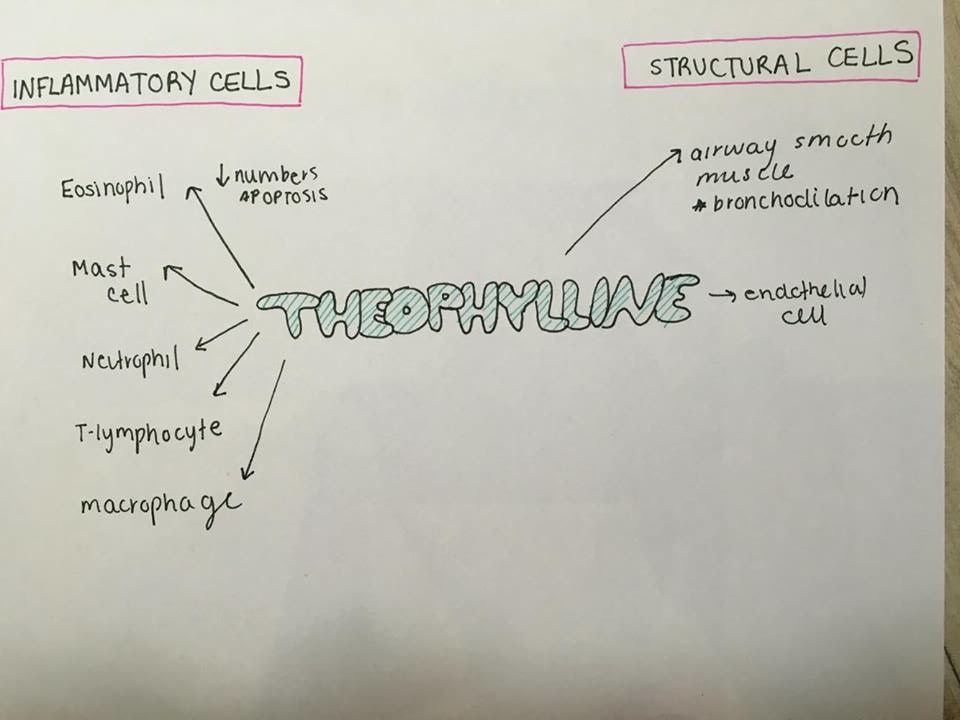 INFLAMMATORY CELLS
STRUCTURAL CELLS
Eosinophil
↓ numbers
APOPTOSIS
Mast
cell
Neutrophil
T-lymphocyte
macrophage
THEOPHYLLINE
airway smooth
muscle
* bronchodilation
endothelial
cell